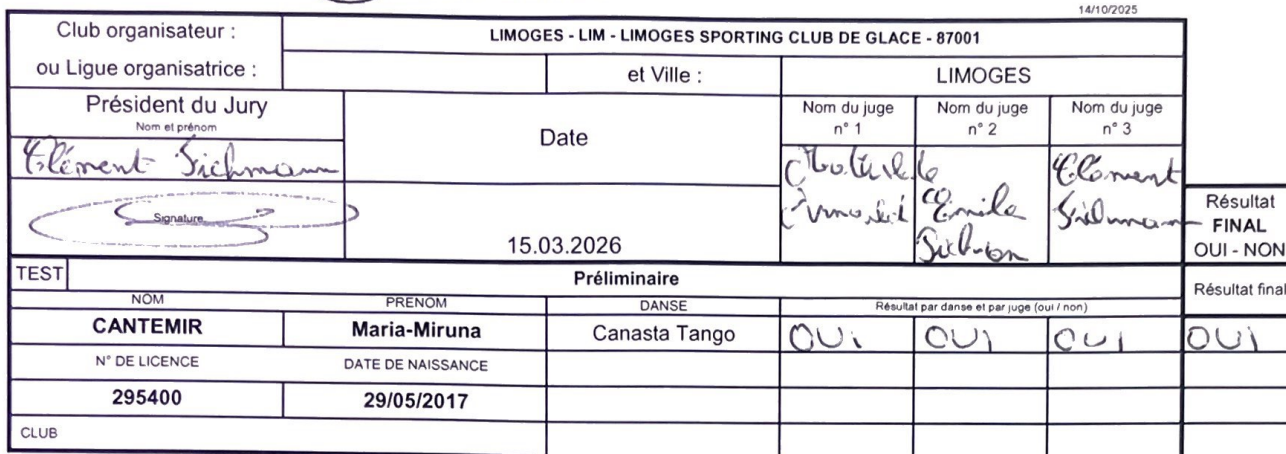 14/10/2025
Club organisateur :
LIMOGES - LIM - LIMOGES SPORTING CLUB DE GLACE - 87001
ou Ligue organisatrice :
et Ville :
LIMOGES
Président du Jury
Nom et prénom
Date
Nom du juge
n° 1
Nom du juge
n° 2
Nom du juge
n° 3
Clément
Emile
Clément
Signature
15.03.2026
Résultat
FINAL
OUI - NON
TEST
Préliminaire
Résultat final
NOM
PRENOM
DANSE
Résultat par danse et par juge (oui / non)
CANTEMIR
Maria-Miruna
Canasta Tango
OUI
OUI
OUI
OUI
N° DE LICENCE
DATE DE NAISSANCE
295400
29/05/2017
CLUB